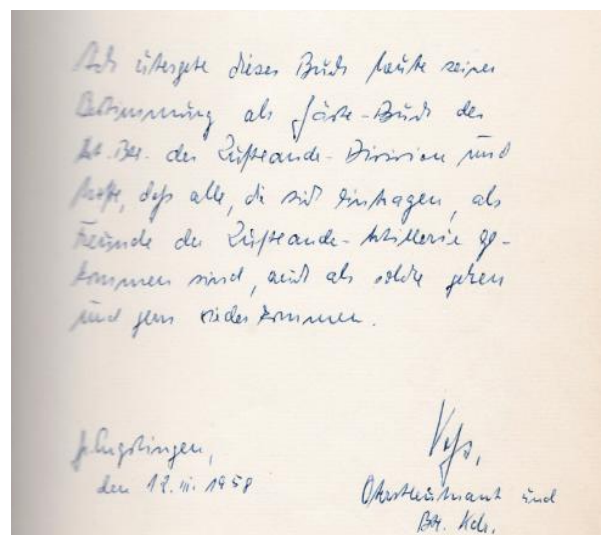 Ich übergebe dieses Buch heute seiner
Bestimmung als Gäste-Buch der
Art. Btl. der Luftlande-Division und
hoffe, daß alle, die sich eintragen, als
Freunde der Luftlande-Artillerie ge-
kommen sind, auch als solche gehen
und gern wieder kommen.
Engstingen,
den 12.III.1958
Voß,
Oberstleutnant und
Btl. Kdr.